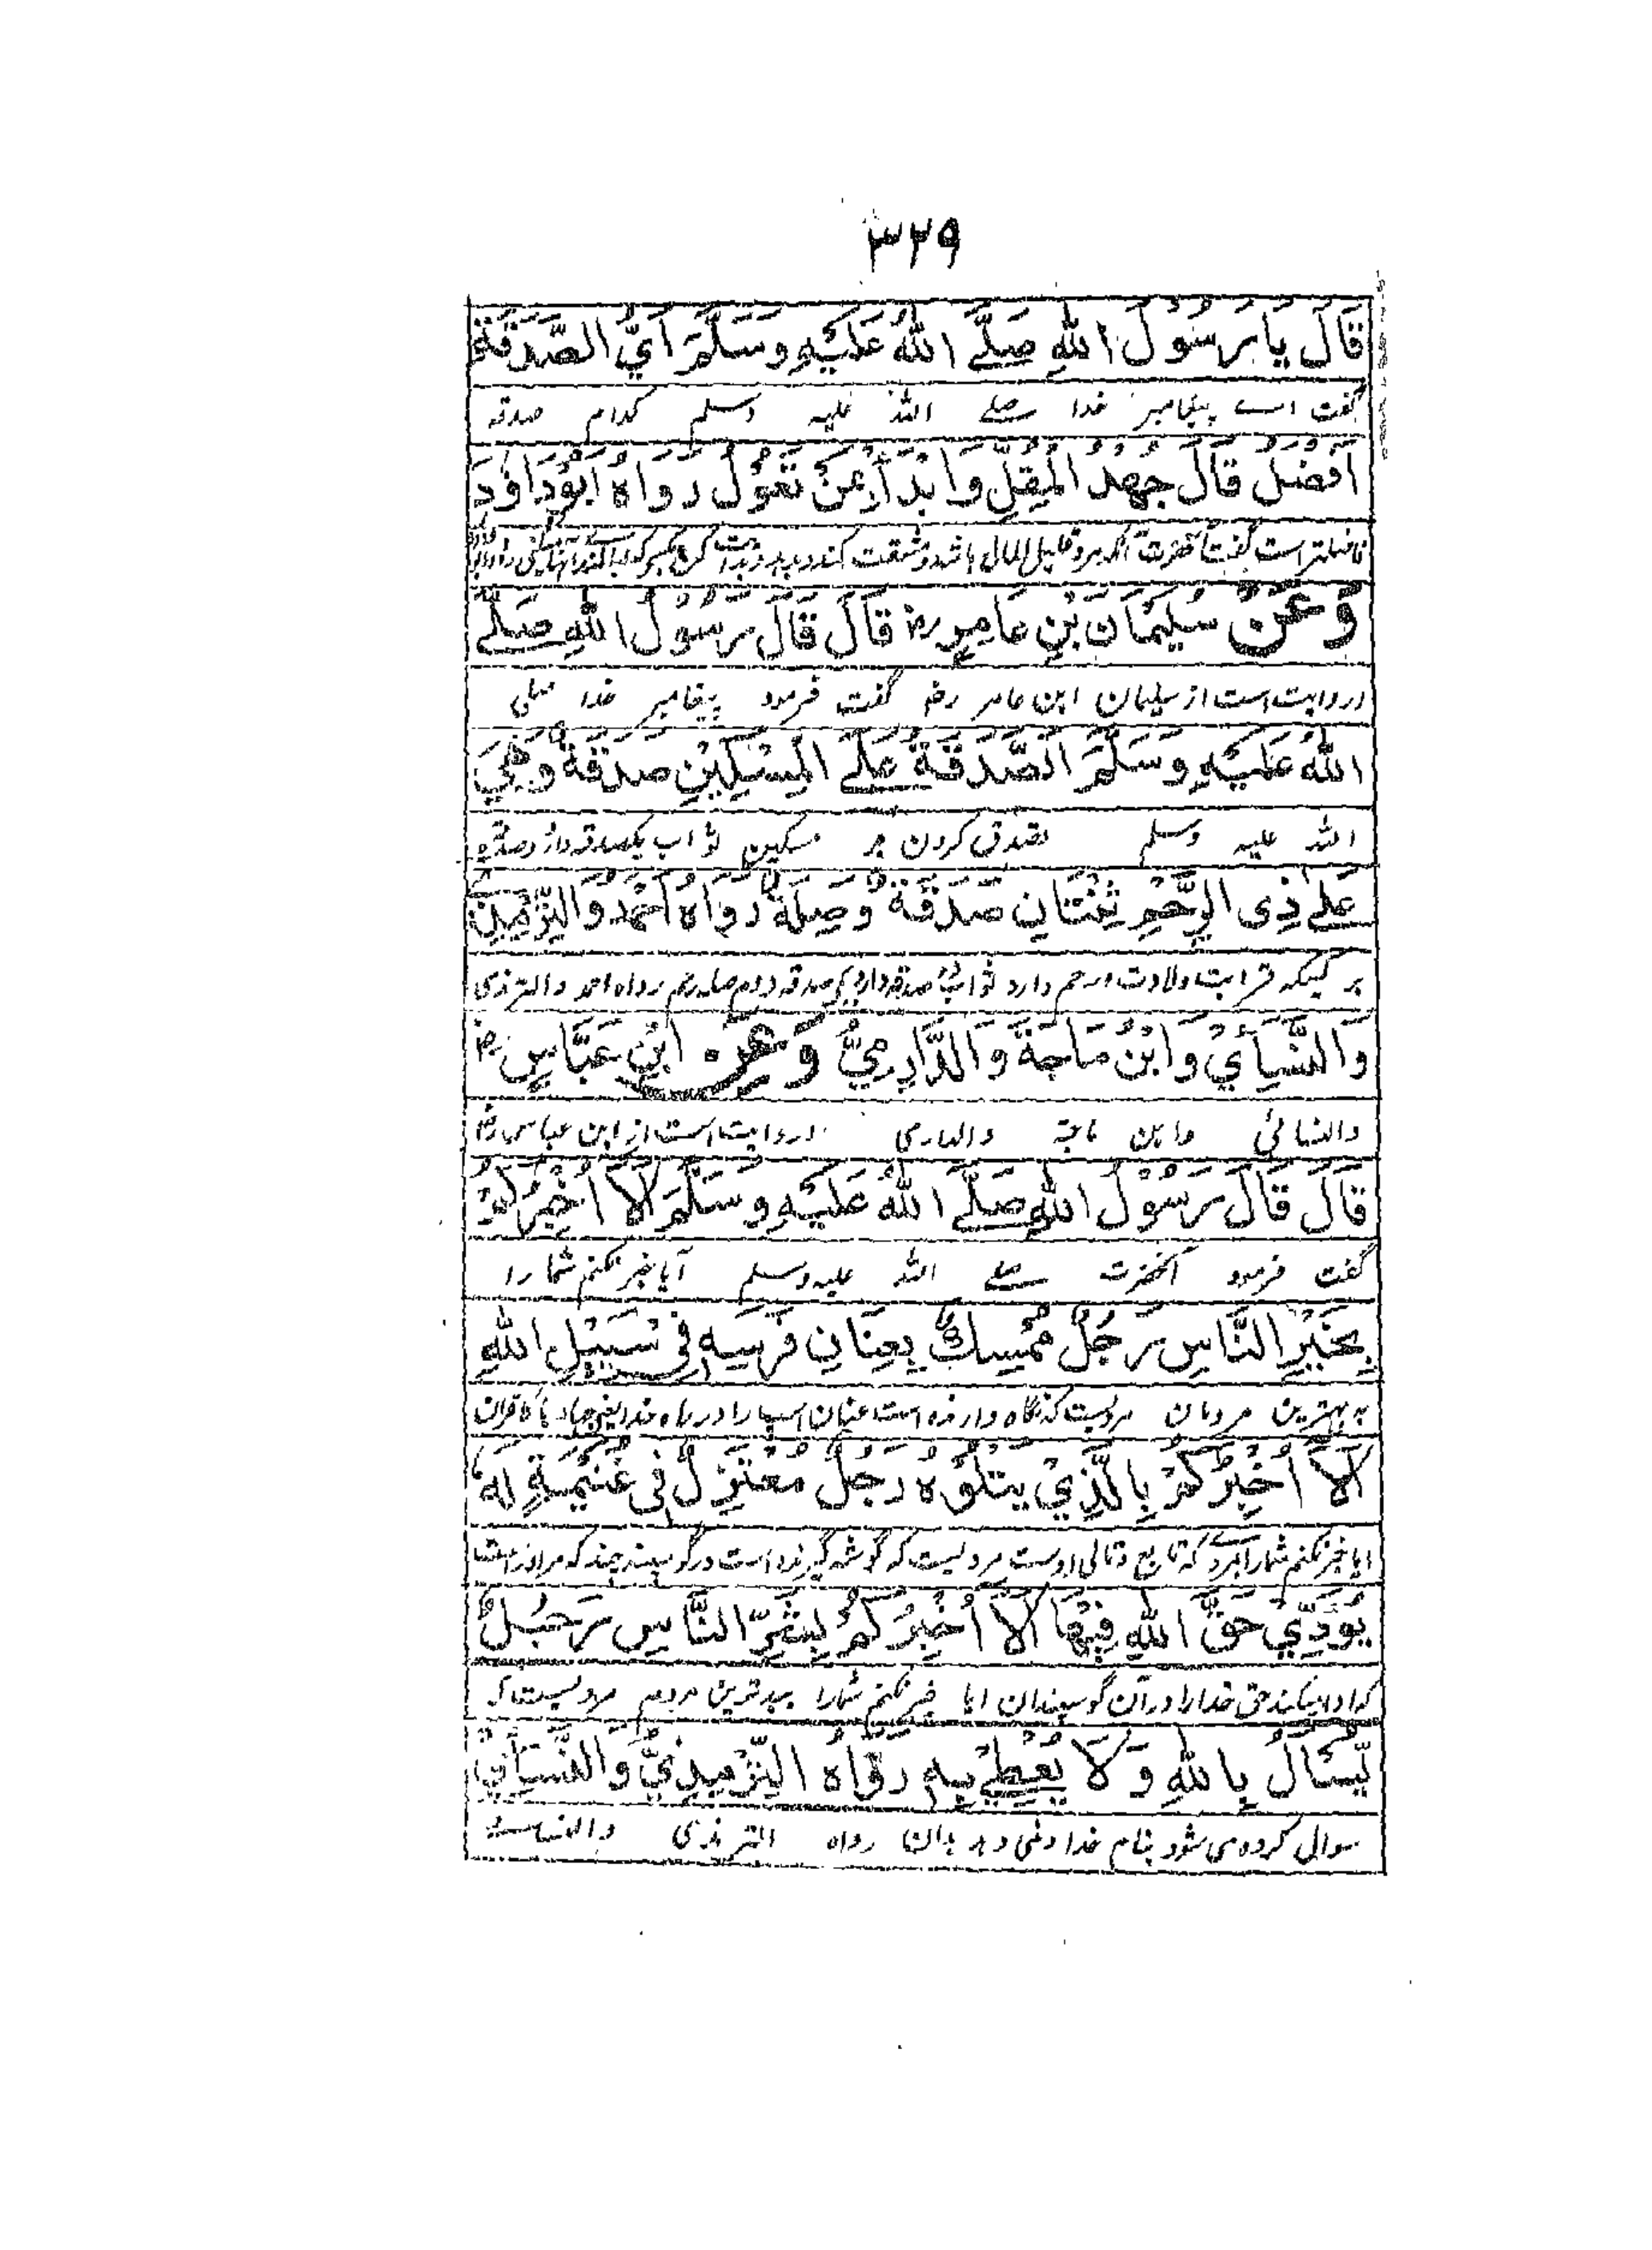 ۳۲۹
قَالَ يَا رَسُوْلَ اللهِ صَلَّے اللهُ عَلَيْهِ وَسَلَّمَ اَيُّ الصَّدَقَةِ
گفت اے پیغامبر خدا صلے اللہ علیہ وسلم کدام صدقہ
اَفْضَلُ قَالَ جُهْدُ الْمُقِلِّ وَابْدَأْ بِمَنْ تَعُوْلُ رَوَاهُ اَبُوْدَاؤدَ
فاضلتر است گفت آنحضرت آنکہ مرد قلیل المال باشد و مشقت کند
وَعَنْ سُلَيْمَانَ بْنِ عَامِرٍ رض قَالَ قَالَ رَسُوْلُ اللهِ صَلَّے
روایت است از سلیمان ابن عامر رض گفت فرمود پیغامبر خدا صلی
اللهُ عَلَيْهِ وَسَلَّمَ اَلصَّدَقَةُ عَلَے الْمِسْكِيْنِ صَدَقَةٌ وَهِيَ
اللہ علیہ وسلم تصدق کردن بر مسکین ثواب یکصدقہ دارد
عَلٰے ذِی الرَّحِمِ ثِنْتَانِ صَدَقَةٌ وَصِلَةٌ رَوَاهُ اَحْمَدُ وَالتِّرْمِذِيُّ
بر کسیکہ قرابت ولادت و رحم دارد ثواب دو صدقہ دارد یکی صدقہ دوم صلہ رحم رواہ احمد والترمذی
وَالنَّسَائِيُّ وَابْنُ مَاجَةَ وَالدَّارِمِيُّ وَعَنِ ابْنِ عَبَّاسٍ رض
والنسائی وابن ماجہ والدارمی روایت است از ابن عباس رض
قَالَ قَالَ رَسُوْلُ اللهِ صَلَّے اللهُ عَلَيْهِ وَسَلَّمَ اَلَا اُخْبِرُكُمْ
گفت فرمود آنحضرت صلے اللہ علیہ وسلم آیا خبر نکنم شما را
بِخَيْرِ النَّاسِ رَجُلٌ مُمْسِكٌ بِعِنَانِ فَرَسِهٖ فِیْ سَبِيْلِ اللهِ
بہ بہترین مردمان مردیست کہ نگاہ دارندہ است عنان اسپ را در راہ خدا یعنی جہاد با کافران
اَلَا اُخْبِرُكُمْ بِالَّذِيْ يَتْلُوْهُ رَجُلٌ مُعْتَزِلٌ فِیْ غُنَيْمَةٍ لَهٗ
ایا خبر نکنم شما را بمردے کہ تابع و تالی اوست مردیست کہ گوشہ گیرندہ است در گوسپند چند کہ مر او را است
يُؤَدِّيْ حَقَّ اللهِ فِيْهَا اَلَا اُخْبِرُكُمْ بِشَرِّ النَّاسِ رَجُلٌ
کہ ادا میکند حق خدا را در آن گوسپندان ایا خبر نکنم شما را ببدترین مردم مردیست کہ
يُسْئَالُ بِاللهِ وَلَا يُعْطِيْ بِهٖ رَوَاهُ التِّرْمِذِيُّ وَالنَّسَائِيُّ
سوال کردہ می شود بنام خدا و نمی دہد بدان رواہ الترمذی والنسائے